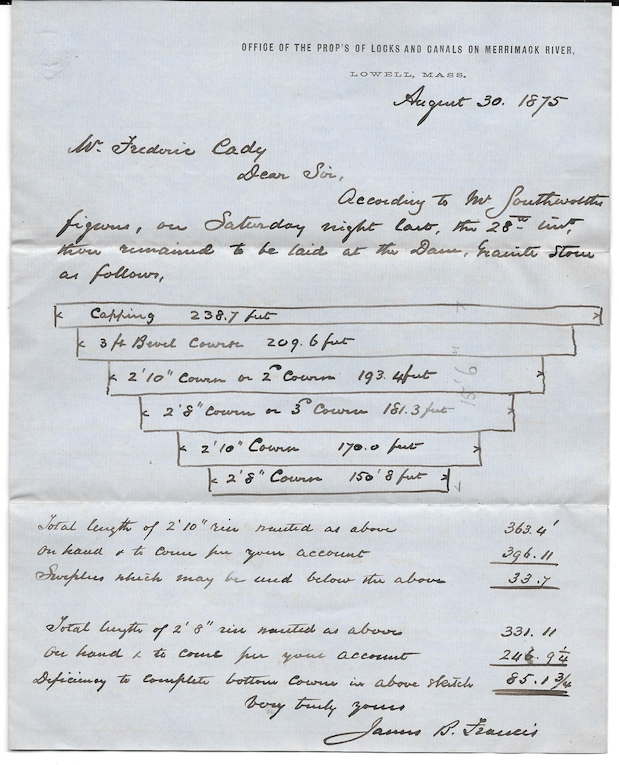 OFFICE OF THE PROP'S OF LOCKS AND CANALS ON MERRIMACK RIVER,
LOWELL, MASS.
August 30. 1875
Mr. Frederic Cady
Dear Sir,
According to Mr Southworth's
figures, on Saturday night last, the 28th inst,
there remained to be laid at the Dam, Granite Stone
as follows,
Capping 238.7 feet
3 ft Bevel Course 209.6 feet
2'10" Course or 2d Course 193.4 feet
2'8" Course or 3d Course 181.3 feet
2'10" Course 170.0 feet
2'8" Course 150'8 feet
Total length of 2'10" rise wanted as above 363.4'
On hand & to come per your account 396.11
Surplus which may be used below the above 33.7
Total length of 2'8" rise wanted as above 331.11
On hand & to come per your account 246.9¼
Deficiency to complete bottom course in above sketch 85.1¾
Very truly yours
James B. Francis